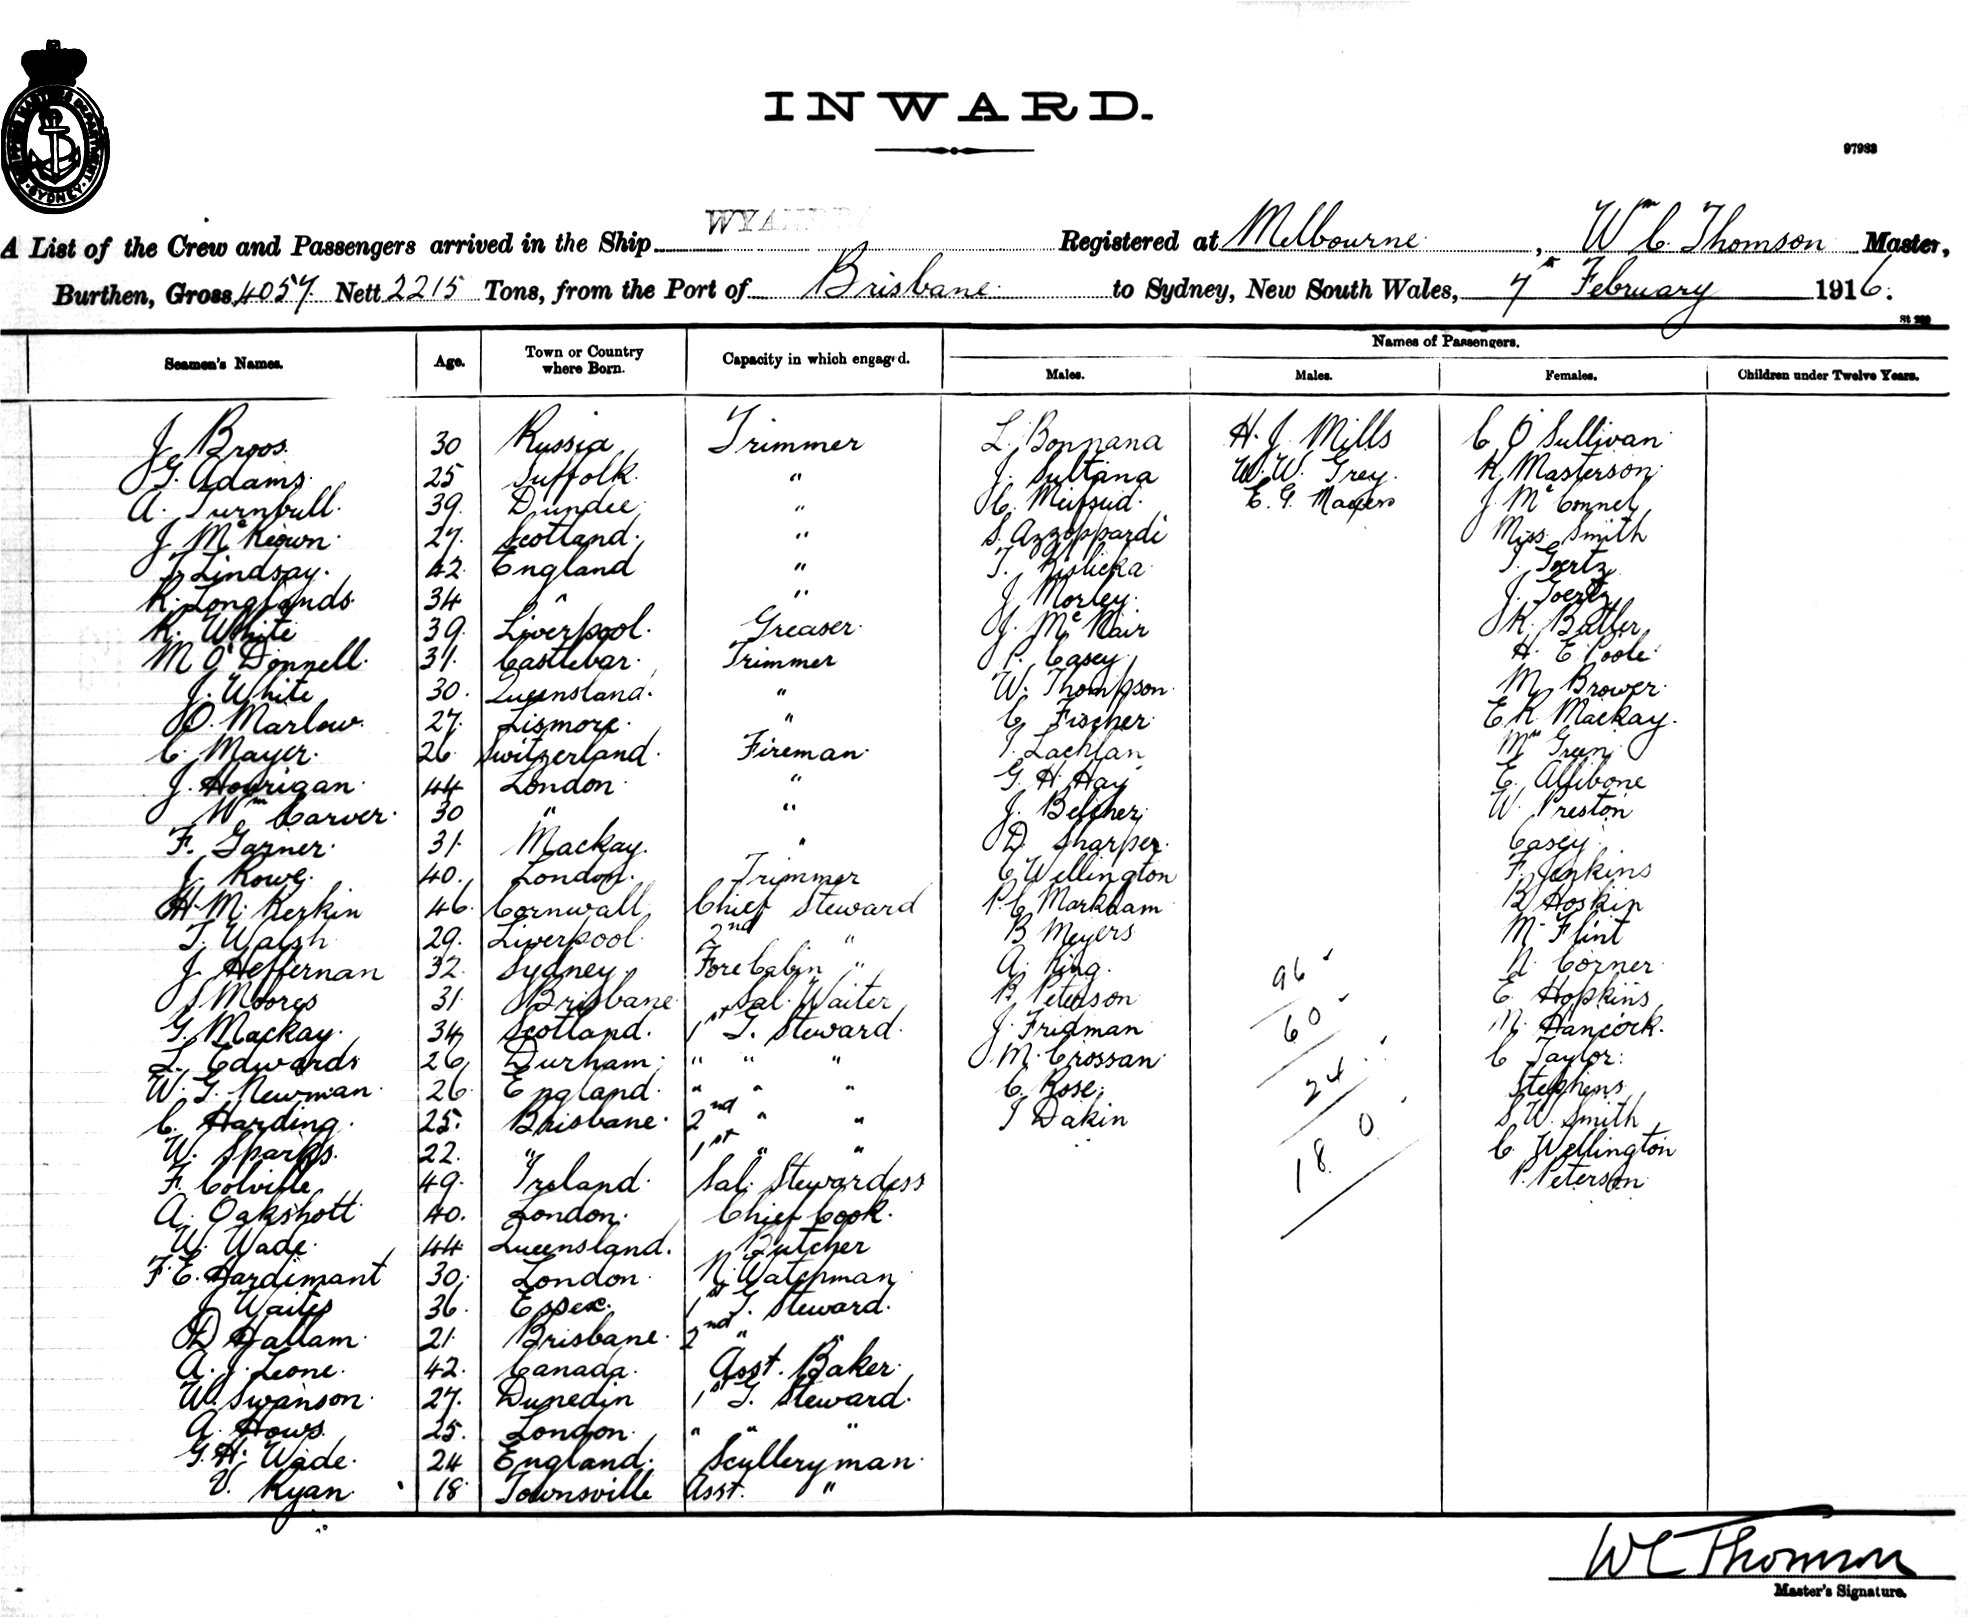 INWARD.
97983
A List of the Crew and Passengers arrived in the Ship WYANDRA Registered at Melbourne, Wm C Thomson Master,
Burthen, Gross 4057 Nett 2215 Tons, from the Port of Brisbane to Sydney, New South Wales, 7th February 1916.
Names of Passengers.
Seamen's Names. Age. Town or Country where Born. Capacity in which engaged. Males. Males. Females. Children under Twelve Years.
J Broos 30 Russia Trimmer L. Bonnana H. J. Mills C O'Sullivan
G. Adams 25 Suffolk " J. Sultana W. W. Grey K. Masterson
A. Turnbull 39 Dundee " C. Mifsud E. G. Mayers J McConnel
J McKeown 27 Scotland " S. Azzoppardi Miss Smith
T Lindsay 42 England " T. J. Goertz
R. Longlands 34 " " J Morley J. Goertz
R. White 39 Liverpool Greaser J. McNair K. Butler
M O'Donnell 31 Castlebar Trimmer P. Casey H. E. Poole
J. White 30 Queensland " W. Thompson M. Brower
O. Marlow 27 Lismore " C Fischer E R Mackay
C Mayer 26 Switzerland Fireman J. Lachlan Mrs Green
J. Hourigan 44 London " G. H. Hay E. Allibone
Wm Carver 30 " " J. Belcher W. Preston
F. Garner 31 Mackay " D Sharper Casey
J Rowe 40 London Trimmer C Wellington F. Jenkins
H. M. Kerkin 46 Cornwall Chief Steward P. C Markham B Hoskin
T. Walsh 29 Liverpool 2nd " B Meyers M. Flint
J Heffernan 32 Sydney Fore Cabin " A. King 96 N. Corner
S Moores 31 Brisbane Sal. Waiter B Peterson E. Hopkins
G. Mackay 34 Scotland 1st G. Steward J. Fridman 60 M. Hancock
L. Edwards 26 Durham " " " M. Crossan C Taylor
W. G. Newman 26 England " " " C. Rose 24 Stephens
C. Harding 25 Brisbane 2nd " " J Dakin S. W. Smith
W. Sparks 22 " 1st " " 180 C. Wellington
F. Colville 49 Ireland Sal. Stewardess P. Peterson
A. Oakshott 40 London Chief Cook
W. Wade 44 Queensland Butcher
F. E. Hardimant 30 London N. Watchman
J Waites 36 Essex 1st G. Steward
D Hallam 21 Brisbane 2nd " "
A. J. Leone 42 Canada Asst. Baker
W. Swanson 27 Dunedin 1st G. Steward
A. Hows 25 London " " "
G. H. Wade 24 England Sculleryman
V. Ryan 18 Townsville Asst. "
WC Thomson
Master's Signature.